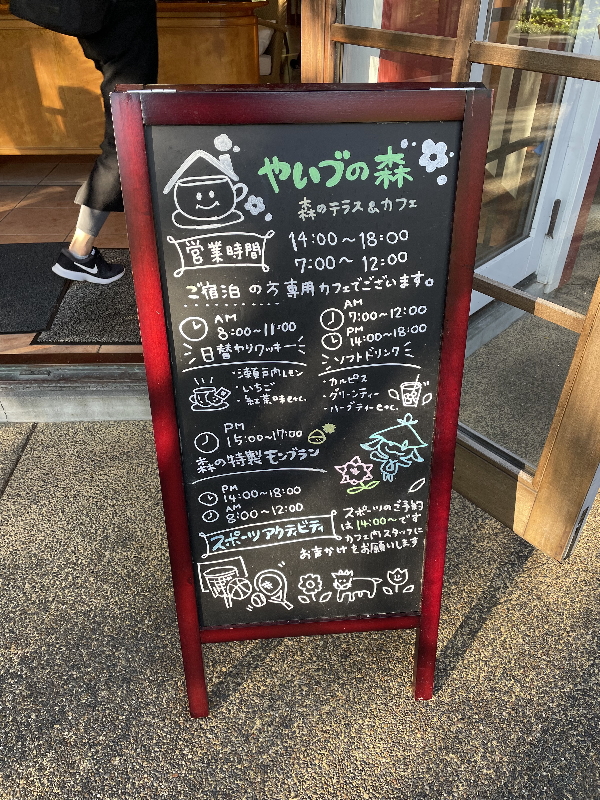 やいづの森
森のテラス&カフェ
営業時間
14:00~18:00
7:00~12:00
ご宿泊の方専用カフェでございます。
AM
8:00~11:00
日替わりクッキー
・瀬戸内レモン
・いちご
・紅葉味etc.
AM
7:00~12:00
PM
14:00~18:00
ソフトドリンク
・カルピス
・グリーンティー
・ハーブティーetc.
PM
15:00~17:00
森の特製モンブラン
PM
14:00~18:00
AM
8:00~12:00
スポーツアクティビティ
スポーツのご予約
は14:00~です
カフェ内スタッフに
お声かけをお願いします